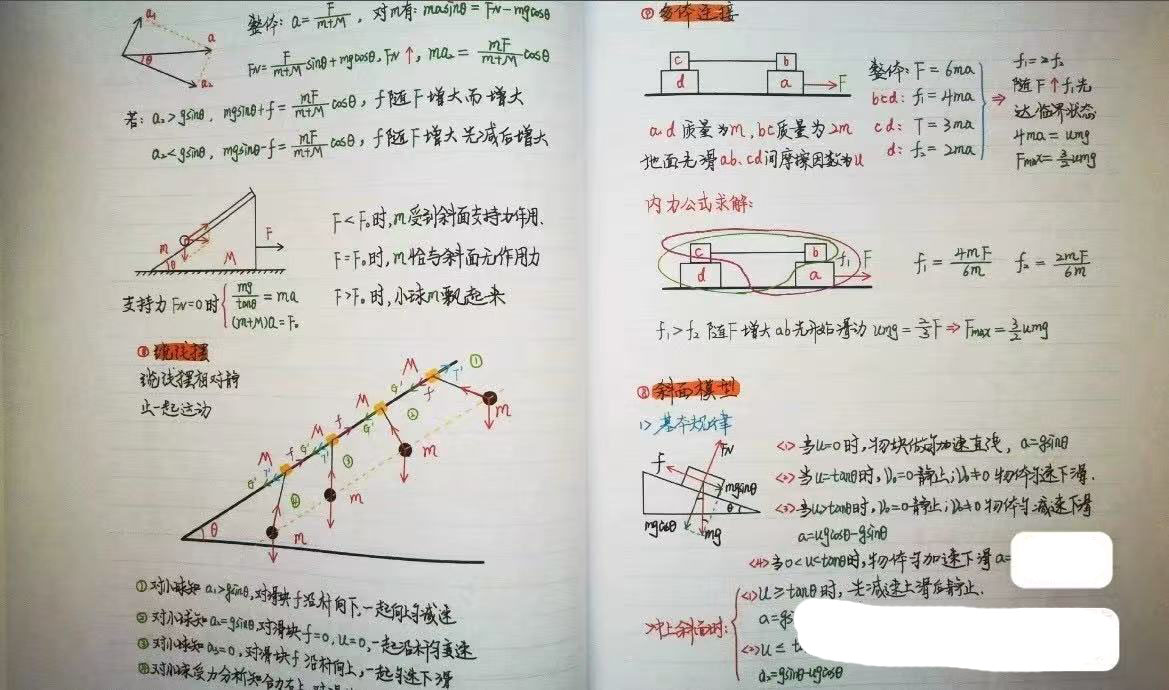 a₁
a
θ
a₂
整体: a=F/(m+M), 对m有: masinθ=F_N-mgcosθ
F_N=F/(m+M)sinθ+mgcosθ, F_N↑, ma₂=mF/(m+M)cosθ
若: a₂>gsinθ, mgsinθ+f=mF/(m+M)cosθ, f随F增大而增大
a₂<gsinθ, mgsinθ-f=mF/(m+M)cosθ, f随F增大先减后增大
m
θ
M
F
F<F₀时,m受到斜面支持力作用.
F=F₀时,m恰与斜面无作用力
F>F₀时,小球m飘起来
支持力F_N=0时 mg/tanθ=ma
(m+M)a=F₀
⑧ 缆线摆
缆线摆相对静
止一起运动
M f G' T' ①
M f G' T' ②
M f G' T' ③
M f G' T' ④
m
m
m
m
θ
①对小球知a₁>gsinθ,对滑块f沿杆向下,一起向上匀减速
②对小球知a₂=gsinθ,对滑块f=0,u=0,一起沿杆匀变速
③对小球知a₃=0,对滑块f沿杆向上,一起匀速下滑
④对小球受力分析知合力右上
⑨ 多体连接
c
d
b
a
F
整体: F=6ma
bcd: f₁=4ma
cd: T=3ma
d: f₂=2ma
⇒
f₁=2f₂
随F↑f₁先
达临界状态
4ma=umg
Fmax=3/2umg
a.d质量为m,bc质量为2m
地面光滑ab、cd间摩擦因数为u
内力公式求解:
c
d
b
a
f₁
F
f₁=4mF/6m f₂=2mF/6m
f₁>f₂随F增大ab先开始滑动 umg=2/3F⇒Fmax=3/2umg
斜面模型
1>基本规律
F_N
f
mgsinθ
θ
mgcosθ
mg
<1>当u=0时,物块做匀加速直线, a=gsinθ
<2>当u=tanθ时,V₀=0静止;V₀≠0物体匀速下滑.
<3>当u>tanθ时,V₀=0静止;V₀≠0物体匀减速下滑
a=ugcosθ-gsinθ
<4>当0<u<tanθ时,物体匀加速下滑a=
冲上斜面时:
<1>u≥tanθ时,先减速上滑后静止.
a=gsi
<2>u≤t
a₂=gsinθ-ugcosθ